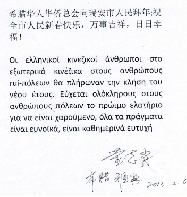 希腊华人华侨总会向瑞安市人民拜年：祝
全市人民新春快乐，万事吉祥，日日幸
福！
Οι ελληνικοί κινεζικοί άνθρωποι στο
εξωτερικό κινέζικα στους ανθρώπους
rui-πόλεων θα πλήρωναν την κλήση του
νέου έτους. Εύχεται ολόκληρους στους
ανθρώπους πόλεων το πρώιμο ελατήριο
για να είναι χαρούμενο, όλα τα πράγματα
είναι ευνοϊκά, είναι καθημερινά ευτυχή